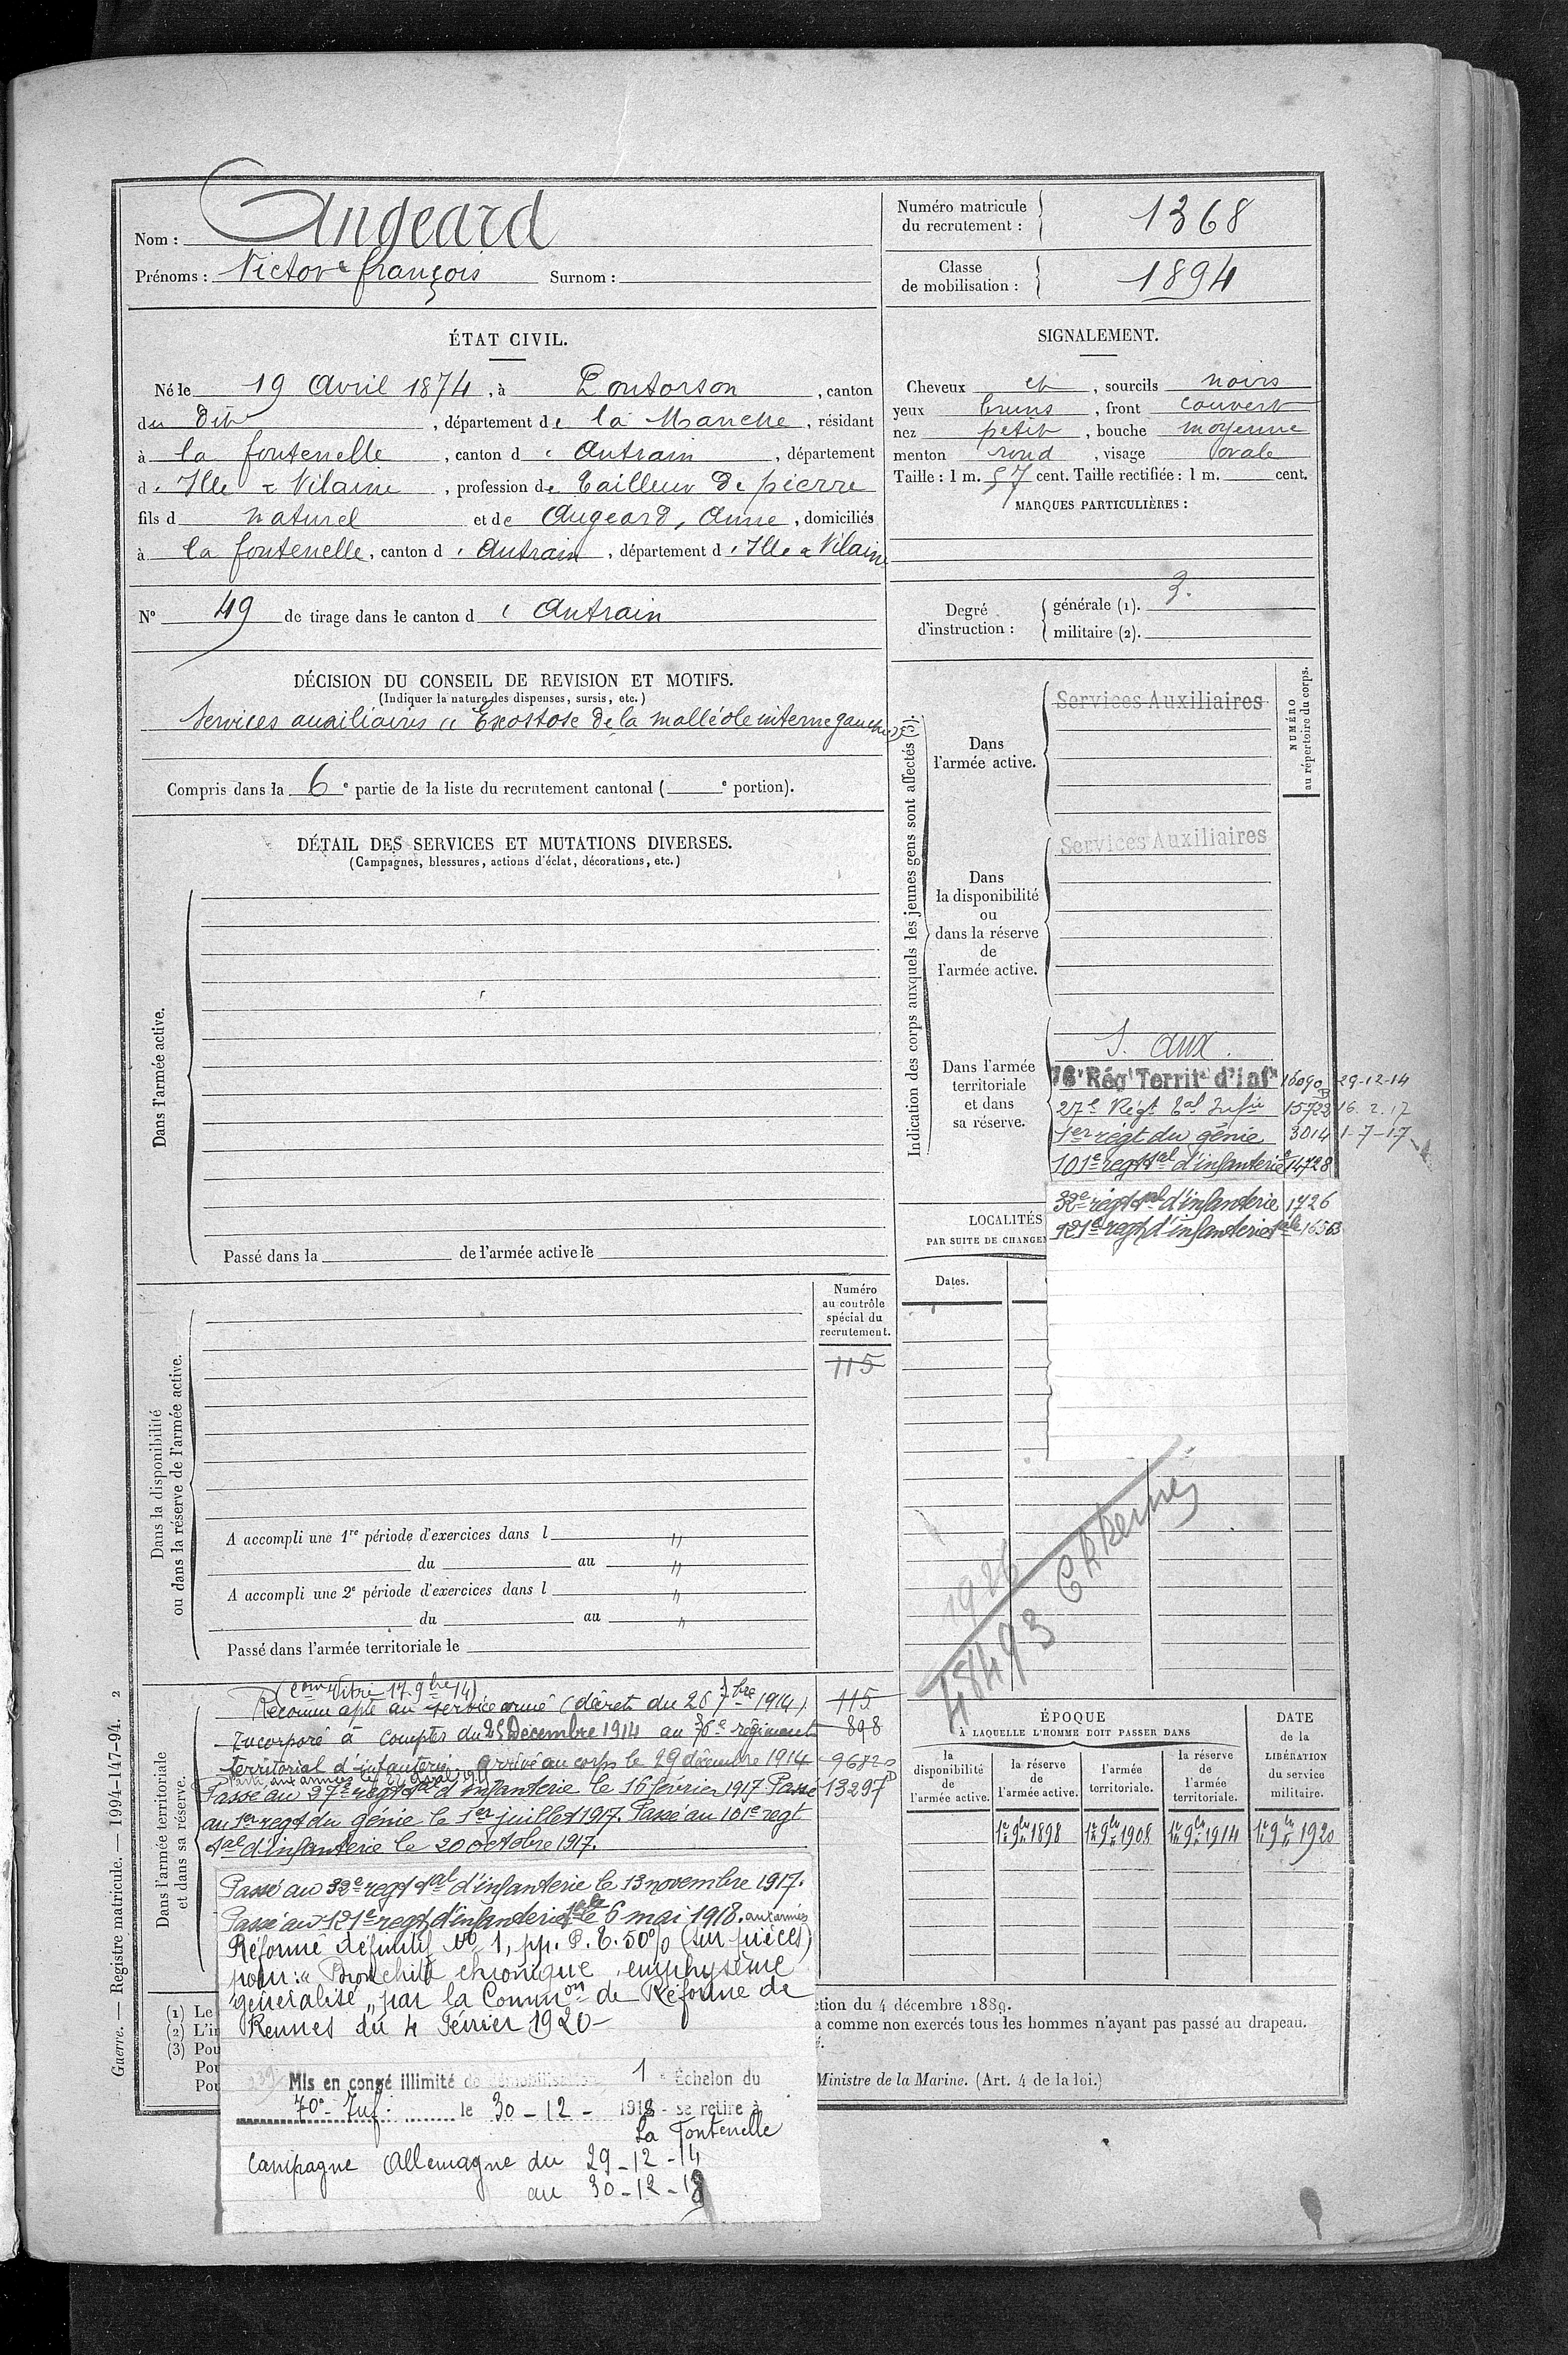 Nom : Angeard
Prénoms : Victor François Surnom :
Numéro matricule du recrutement : 1368
Classe de mobilisation : 1894
ÉTAT CIVIL.
Né le 19 Avril 1874, à Pontorson, canton
du dit, département de la Manche, résidant
à la fontenelle, canton d' Antrain, département
d' Ille & Vilaine, profession de tailleur de pierre
fils d naturel et de Angeard, Anne, domiciliés
à la fontenelle, canton d' Antrain, département d' Ille & Vilaine
N° 49 de tirage dans le canton d' Antrain
SIGNALEMENT.
Cheveux et, sourcils noirs
yeux bruns, front couvert
nez petit, bouche moyenne
menton rond, visage ovale
Taille : 1 m. 57 cent. Taille rectifiée : 1 m. cent.
MARQUES PARTICULIÈRES :
Degré d'instruction : générale (1). 3.
militaire (2).
DÉCISION DU CONSEIL DE REVISION ET MOTIFS.
(Indiquer la nature des dispenses, sursis, etc.)
Services auxiliaires « Exostose de la malléole interne gauche »
Compris dans la 6e partie de la liste du recrutement cantonal ( e portion).
DÉTAIL DES SERVICES ET MUTATIONS DIVERSES.
(Campagnes, blessures, actions d'éclat, décorations, etc.)
Dans l'armée active.
Passé dans la de l'armée active le
Indication des corps auxquels les jeunes gens sont affectés (3).
NUMÉRO au répertoire du corps.
Dans l'armée active.
Services Auxiliaires
Dans la disponibilité ou dans la réserve de l'armée active.
Services Auxiliaires
Dans l'armée territoriale et dans sa réserve.
S. aux.
76e Rég Territ d'Infie 16090 29-12-14
27e Régt tal Infie 15722 16.2.17
1er regt du génie 3014 1-7-17
101e regt tal d'infanterie 14728
32e regt tal d'infanterie 1726
121e regt d'infanterie tale 16563
LOCALITÉS
PAR SUITE DE CHANGE
Dates.
Dans la disponibilité ou dans la réserve de l'armée active.
Numéro au contrôle spécial du recrutement.
115
A accompli une 1re période d'exercices dans l "
du au "
A accompli une 2e période d'exercices dans l "
du au "
Passé dans l'armée territoriale le
1926
48493
Dans l'armée territoriale et dans sa réserve.
(Comon Vitré 17 9bre 14)
Reconnu apte au service armé (décret du 26 7bre 1914) 115
Incorporé à compter du 28 Décembre 1914 au 76e régiment 898
territorial d'infanterie arrivé au corps le 29 décembre 1914 9682
Passé au 27e regt tal d'infanterie le 16 février 1917 Passé 13297
au 1er regt du génie le 1er juillet 1917. Passé au 101e regt
tal d'infanterie le 20 octobre 1917.
Passé au 32e regt tal d'infanterie le 13 novembre 1917.
Passé au 121e regt d'infanterie tale le 6 mai 1918. aux armées
Réformé définitif No 1, pp. P. E. 50% (sur pièces)
pour : « Bronchite chronique, emphysème
généralisé » par la Common de Réforme de
Rennes du 4 Février 1920-
Mis en congé illimité de démobilisation 1er Échelon du
70e Inf: le 30-12-1918 se retire à
La Fontenelle
Campagne Allemagne du 29-12-14
au 30-12-18
ÉPOQUE
À LAQUELLE L'HOMME DOIT PASSER DANS
DATE de la LIBÉRATION du service militaire.
la disponibilité de l'armée active.
la réserve de l'armée active.
l'armée territoriale.
la réserve de l'armée territoriale.
1er 9bre 1898
1er 9bre 1908
1er 9bre 1914
1er 9bre 1920
(1) Le
(2) L'in
(3) Pou
Pou
Pou
ction du 4 décembre 1889.
a comme non exercés tous les hommes n'ayant pas passé au drapeau.
é.
Ministre de la Marine. (Art. 4 de la loi.)
Guerre. — Registre matricule. — 1994-147-94. 2